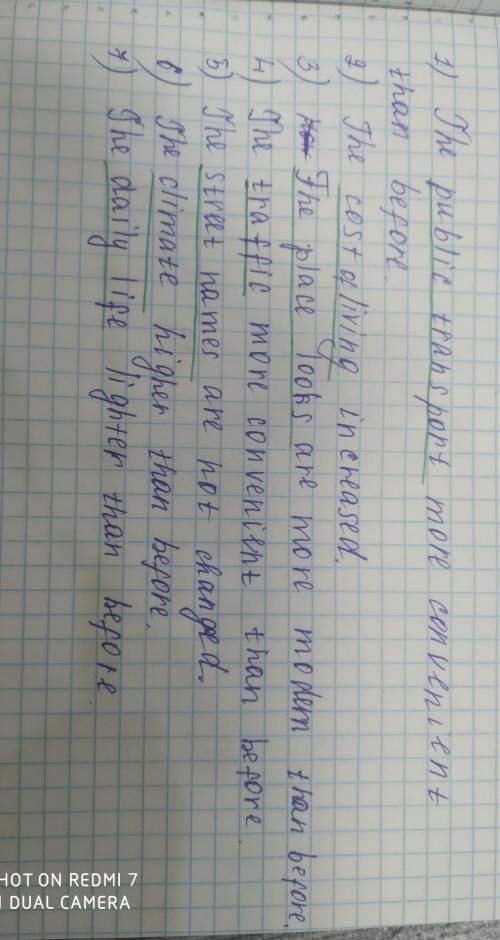 1) The public transport more convenient
than before.
2) The cost of living increased.
3) The place looks are more modern than before.
4) The traffic more convenient than before.
5) The street names are not changed.
6) The climate higher than before.
7) The daily life lighter than before
SHOT ON REDMI 7
AI DUAL CAMERA